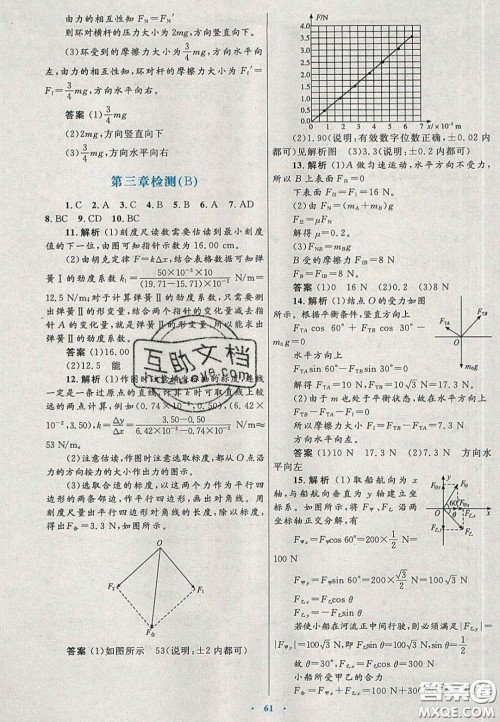 由力的相互性知 FN=FN′
即环对横杆的压力大小为 2mg,方向竖直向下
(3)环受到的摩擦力大小为 3/4 mg,方向水平向
左,由力的相互性知,环对杆的摩擦力大小为 F1′=
F1= 3/4 mg,方向水平向右。
答案 (1) 3/4 mg
(2)2mg,方向竖直向下
(3) 3/4 mg,方向水平向右
第三章检测(B)
1. C 2. A 3. C 4. B 5. C 6. A 7. AD
8. BC 9. CD 10. BC
11. 解析 (1)刻度尺读数需要估读到最小刻度
值的下一位,由图可知指针示数为 16.00 cm。
(2)由胡克定律 F=kΔx,结合表格数据可知弹
簧Ⅰ的劲度系数 k1= 50×10⁻²×10/(19.71-15.71)×10⁻² N/m=
12.5 N/m;对于计算弹簧Ⅱ的劲度系数,只需要测
出弹簧Ⅱ的形变量,结合两个指针的变化量减去指
针 A 的变化量,就是弹簧Ⅱ的形变量,所以能求出
弹簧Ⅱ的劲度系数。
答案 (1)16.00
(2)12.5 能
12. 解析
一定是一条过原点的直线,
两点进行计算,例如
6.42×10⁻²,3.50),k= Δy/Δx = 3.50-0.50/6.42×10⁻²-0.74×10⁻² ≈
53 N/m。
(2)注意估读,作图时注意选取标度,都以从 O
点沿力的方向按力的大小作出力的图示。
(3)选取合适的标度,以两力为邻边作平行四
边形的两条邻边,作平行四边形,画出对角线。用
刻度尺量出平行四边形对角线的长度,以标度,求
得 F合=3.3 N,如图所示。
O
F1
F2
F合
答案 (1)如图所示 53(说明:±2 内都可)
F/N
4.0
3.5
3.0
2.5
2.0
1.5
1.0
0.5
0
1 2 3 4 5 6 7 x/(×10⁻² m)
(2)1.90(说明:有效数字位数正确,±0.02 内
都可)见解析图 (3)3.3(说明:±0.2 内都可)
13. 解析 (1)A 做匀速运动,水平方向不受力,
所以 B 上表面 Ff1=0
下表面 Ff2=F=16 N。
(2)FN=(mA+mB)g
Ff2=μFN
解得 μ=0.2。
(3)FNB=mBg
B 受的摩擦力 FfB=F=8 N
答案 (1)0 16 N (2)0.2 (3)8 N
14. 解析 (1)结点 O 的受力如
图所示,根据平衡条件,竖直方向上
FTA cos 60°+FTB cos 30°=
m0g
水平方向上
FTA sin 60°=FTB sin 30°
解得 FTA=10 N,FTB≈17.3 N。
(2)由于 m 处于平衡状态,故水平方向上
FTA+F=FTB
解得 F=FTB-FTA=7.3 N。
答案 (1)10 N 17.3 N (2)7.3 N 方向水
平向左
15. 解析 (1)取船航向为 x
轴,与航向垂直为 y 轴建立坐标
系。如图所示,将力沿 x 轴、y 轴
两坐标轴正交分解,有
F甲x=F甲cos 60°=200× 1/2 N=
100 N
F甲y=F甲sin 60°=200× √3/2 N=100√3 N
F乙x=F乙cos θ
F乙y=F乙sin θ
若使小船在河流正中间行驶,则必须满足|F乙y|=
|F甲y|=100√3 N,即 F乙sin θ=200× √3/2 N=100√3 N
故 θ=30°时,F乙=200√3 N
小船所受甲乙的合力
F合=F甲cos 60°+F乙cos θ
61
互助文档